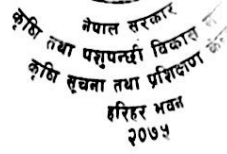 नेपाल सरकार
कृषि तथा पशुपन्छी विकास
कृषि सूचना तथा प्रशिक्षण
हरिहर भवन
२०७५